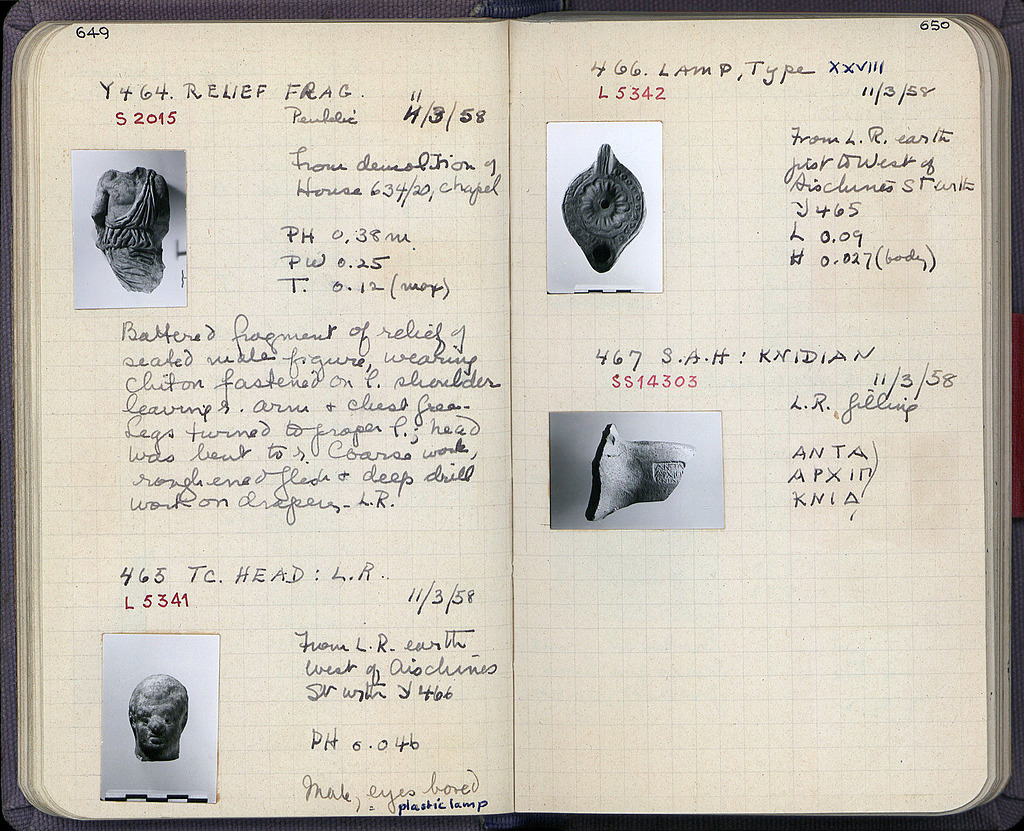 649
Y464. RELIEF FRAG.
S 2015
Pentelic 11/3/58
From demolition of
House 634/20, chapel
PH 0.38 m.
PW 0.25
T. 0.12 (max)
Battered fragment of relief of
seated male figure, wearing
chiton fastened on l. shoulder
leaving r. arm & chest free.
Legs turned to proper l.; head
was bent to r. Coarse work,
roughened flesh & deep drill
work on drapery. L.R.
465 TC. HEAD: L.R.
L 5341
11/3/58
From L.R. earth
west of Aischines
St with Y 466
PH 0.046
Male, eyes bored
= plastic lamp
650
466. LAMP, Type XXVIII
L 5342
11/3/58
From L.R. earth
just to West of
Aischines St with
Y 465
L 0.09
H 0.027 (body)
467 S.A.H: KNIDIAN
SS14303
11/3/58
L.R. filling
ΑΝΤΑ
ΑΡΧΙΠ
ΚΝΙΔ